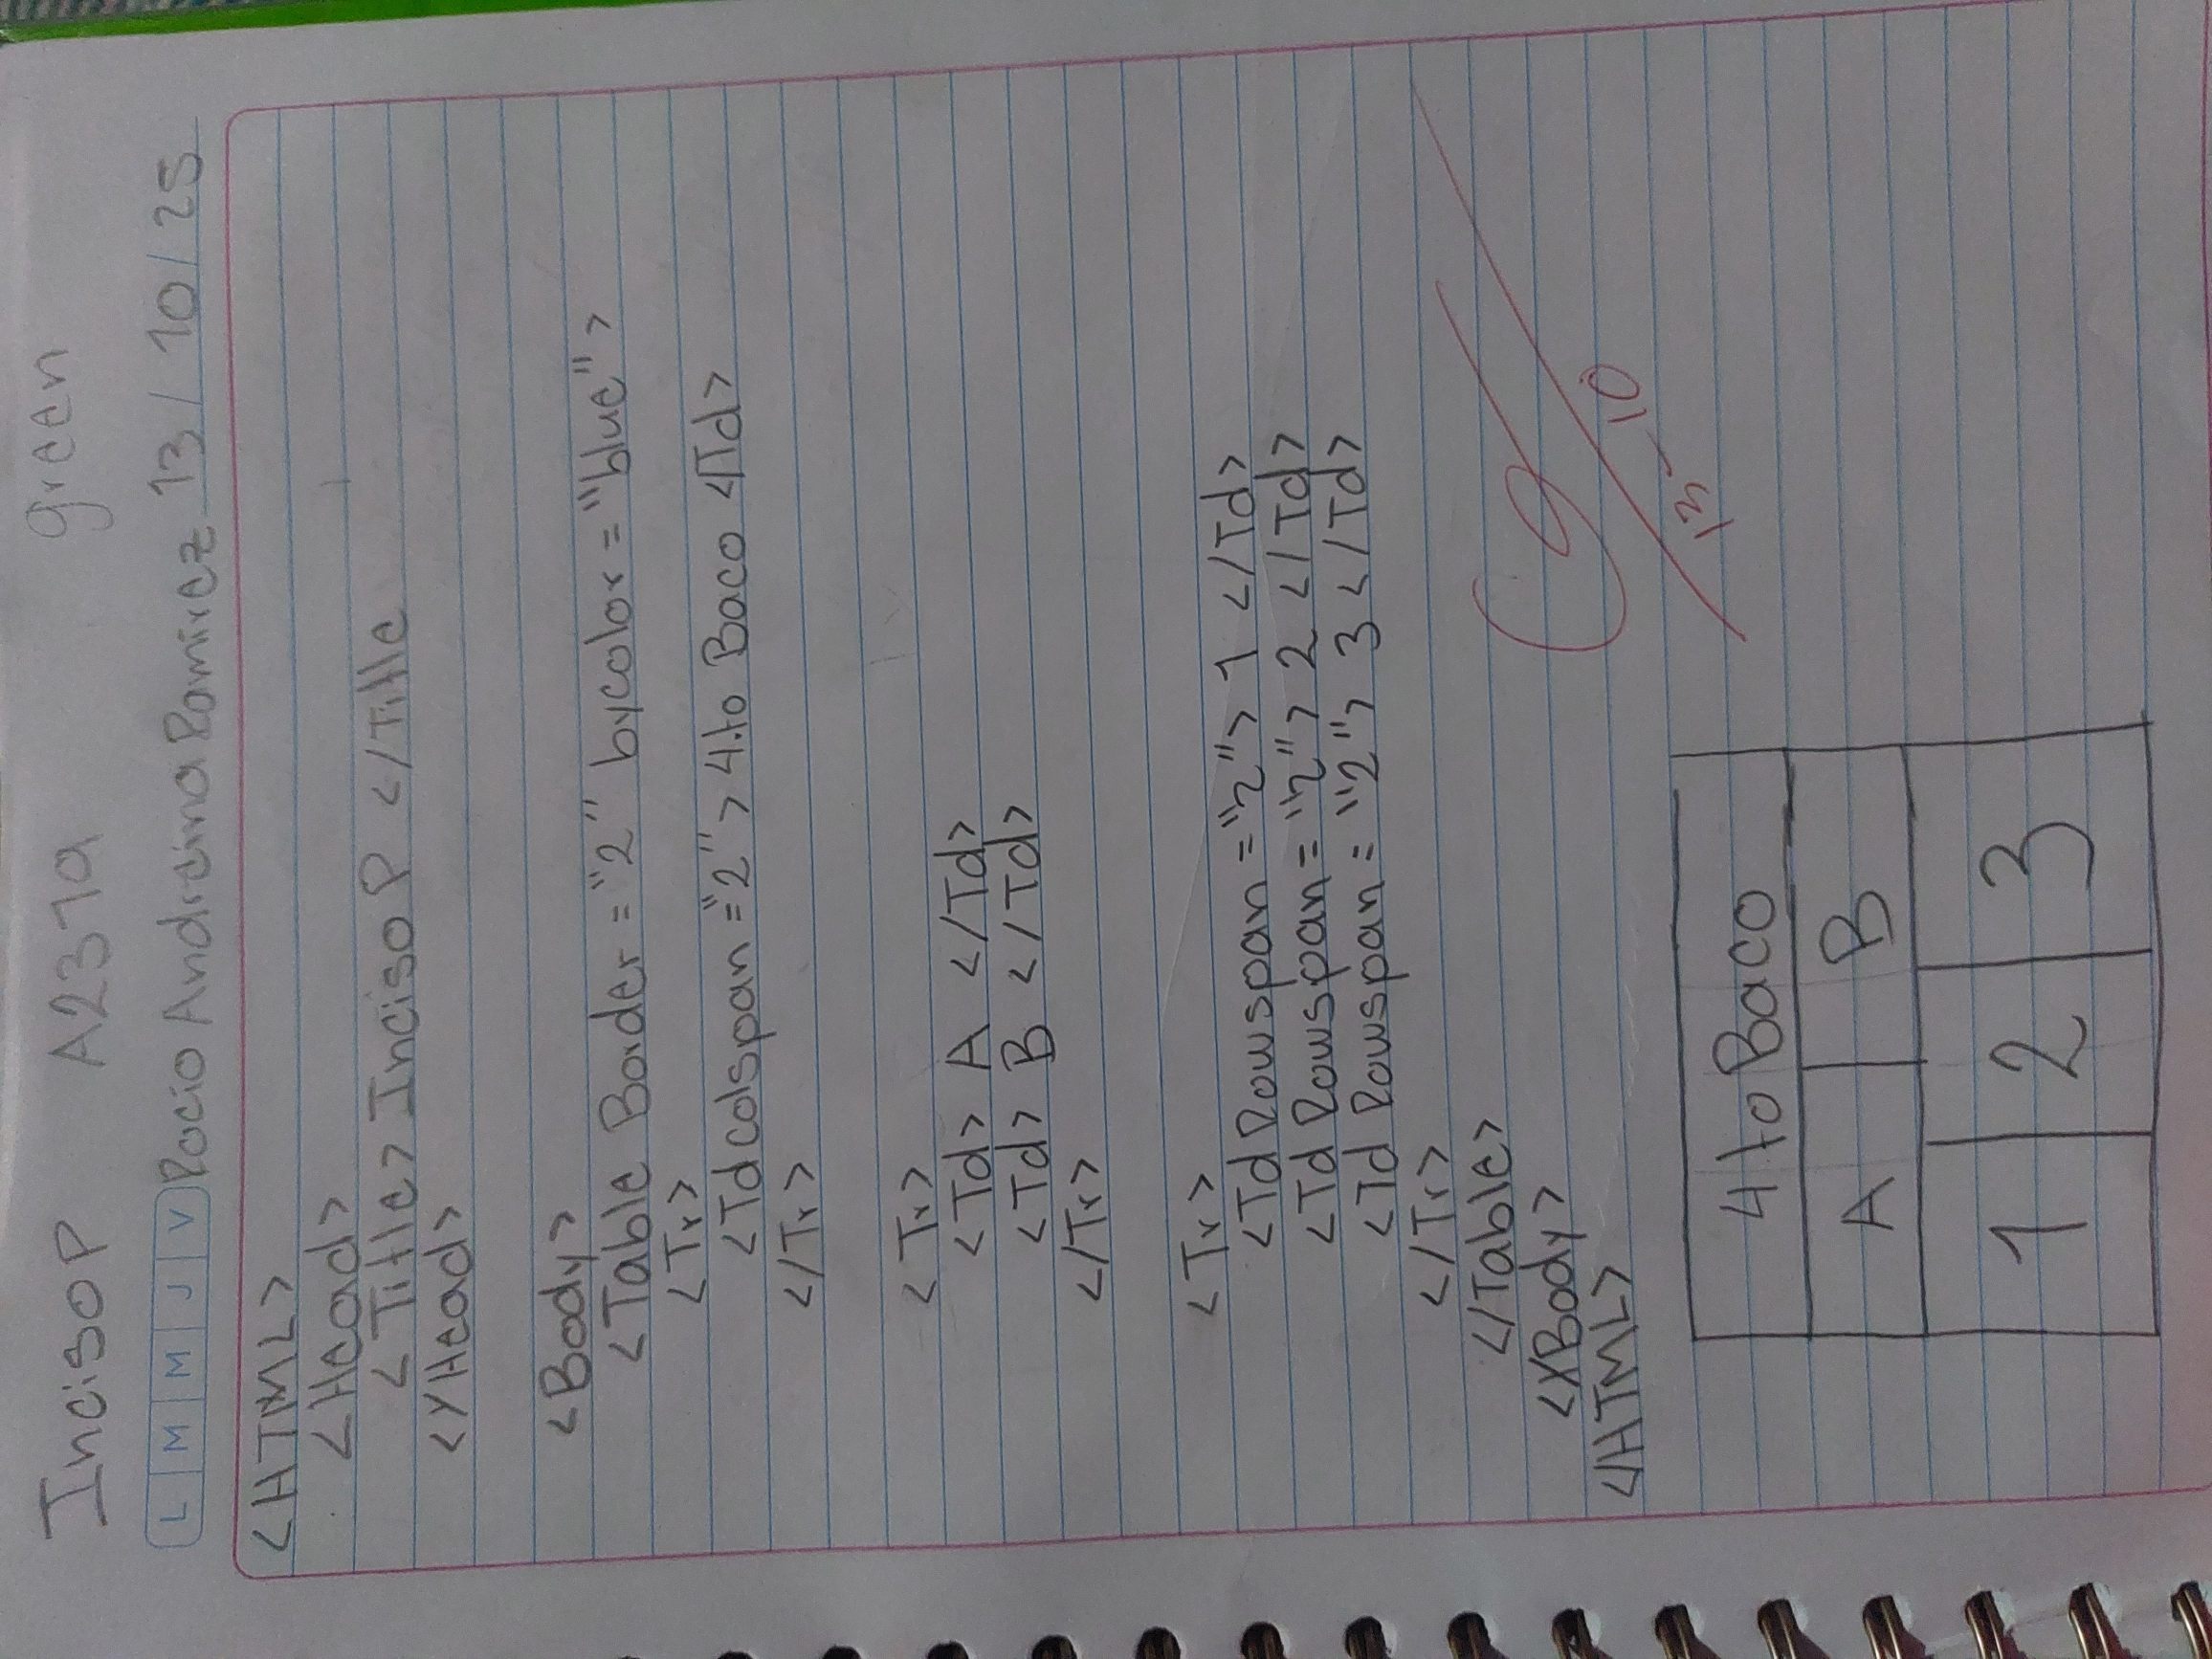 Inciso P A2319 green
L M M J V Rocio Andicina Ramirez 13/10/25
<HTML>
<Head>
<Title> Inciso P </Title
</Head>
<Body>
<Table Border="2" bycolor="blue">
<Tr>
<Td colspan="2"> 4to Baco </Td>
</Tr>
<Tr>
<Td> A </Td>
<Td> B </Td>
</Tr>
<Tr>
<Td Rowspan="2"> 1 </Td>
<Td Rowspan="2"> 2 </Td>
<Td Rowspan="2"> 3 </Td>
</Tr>
</Table>
</Body>
</HTML>
13-10
4to Baco
A B
1 2 3